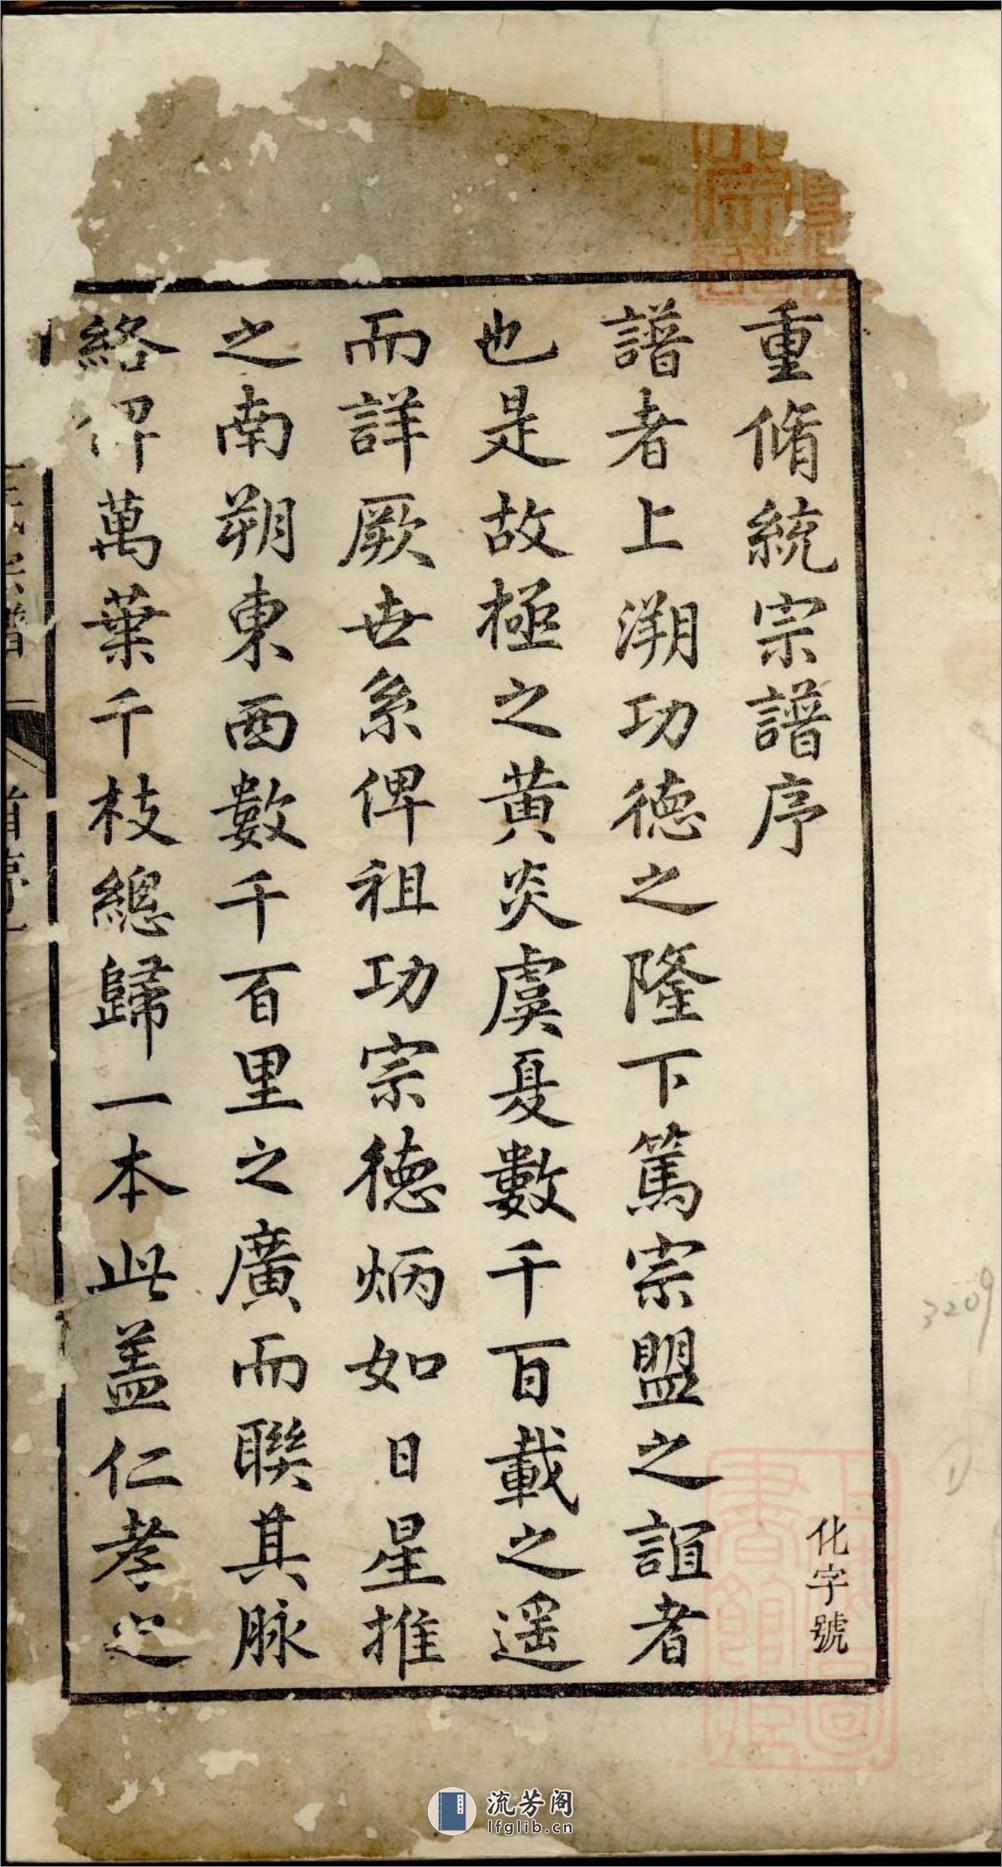 重脩統宗譜序
化字號
譜者上溯功德之隆下篤宗盟之誼者
也是故極之黄炎虞夏數千百載之遥
而詳厥世系俾祖功宗德炳如日星推
之南朔東西數千百里之廣而聯其脉
絡俾萬葉千枝總歸一本此盖仁孝之
3209
流芳阁
lfglib.cn